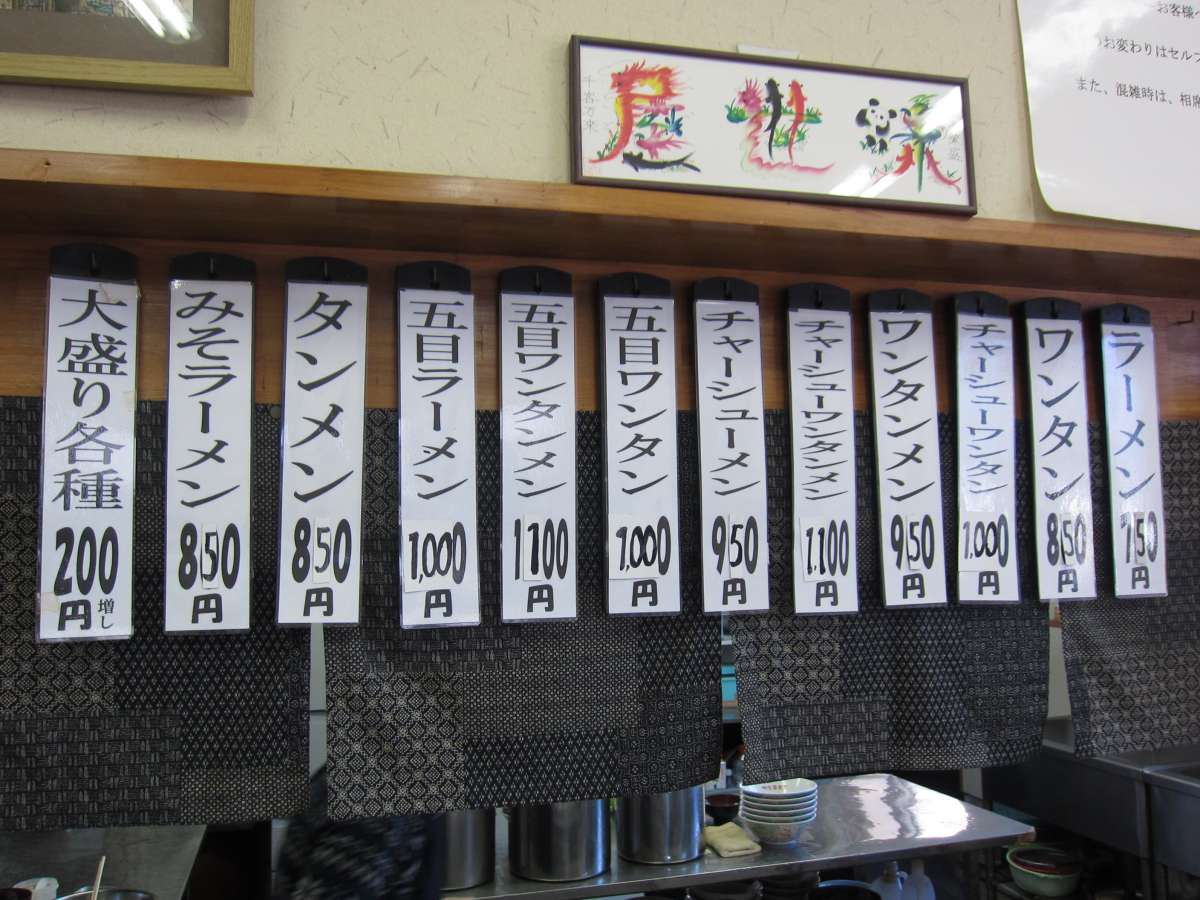 お客様へ
お変わりはセルフ
また、混雑時は、相席
千客万来
栄世屋
ラーメン 750円
ワンタン 850円
チャーシューワンタン 1,000円
ワンタンメン 950円
チャーシューワンタンメン 1,100円
チャーシューメン 950円
五目ワンタン 1,000円
五目ワンタンメン 1100円
五目ラーメン 1,000円
タンメン 850円
みそラーメン 850円
大盛り各種 200円増し